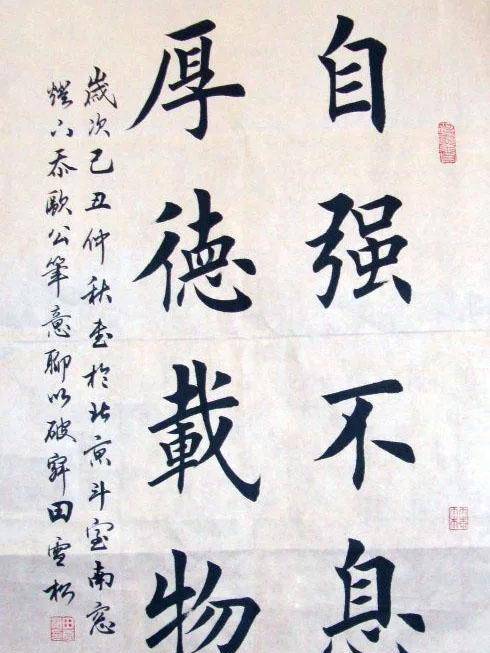 自强不息
厚德載物
歲次己丑仲秋書於北京斗室南窓
燈下忝歐公筆意聊以破寂田雪松